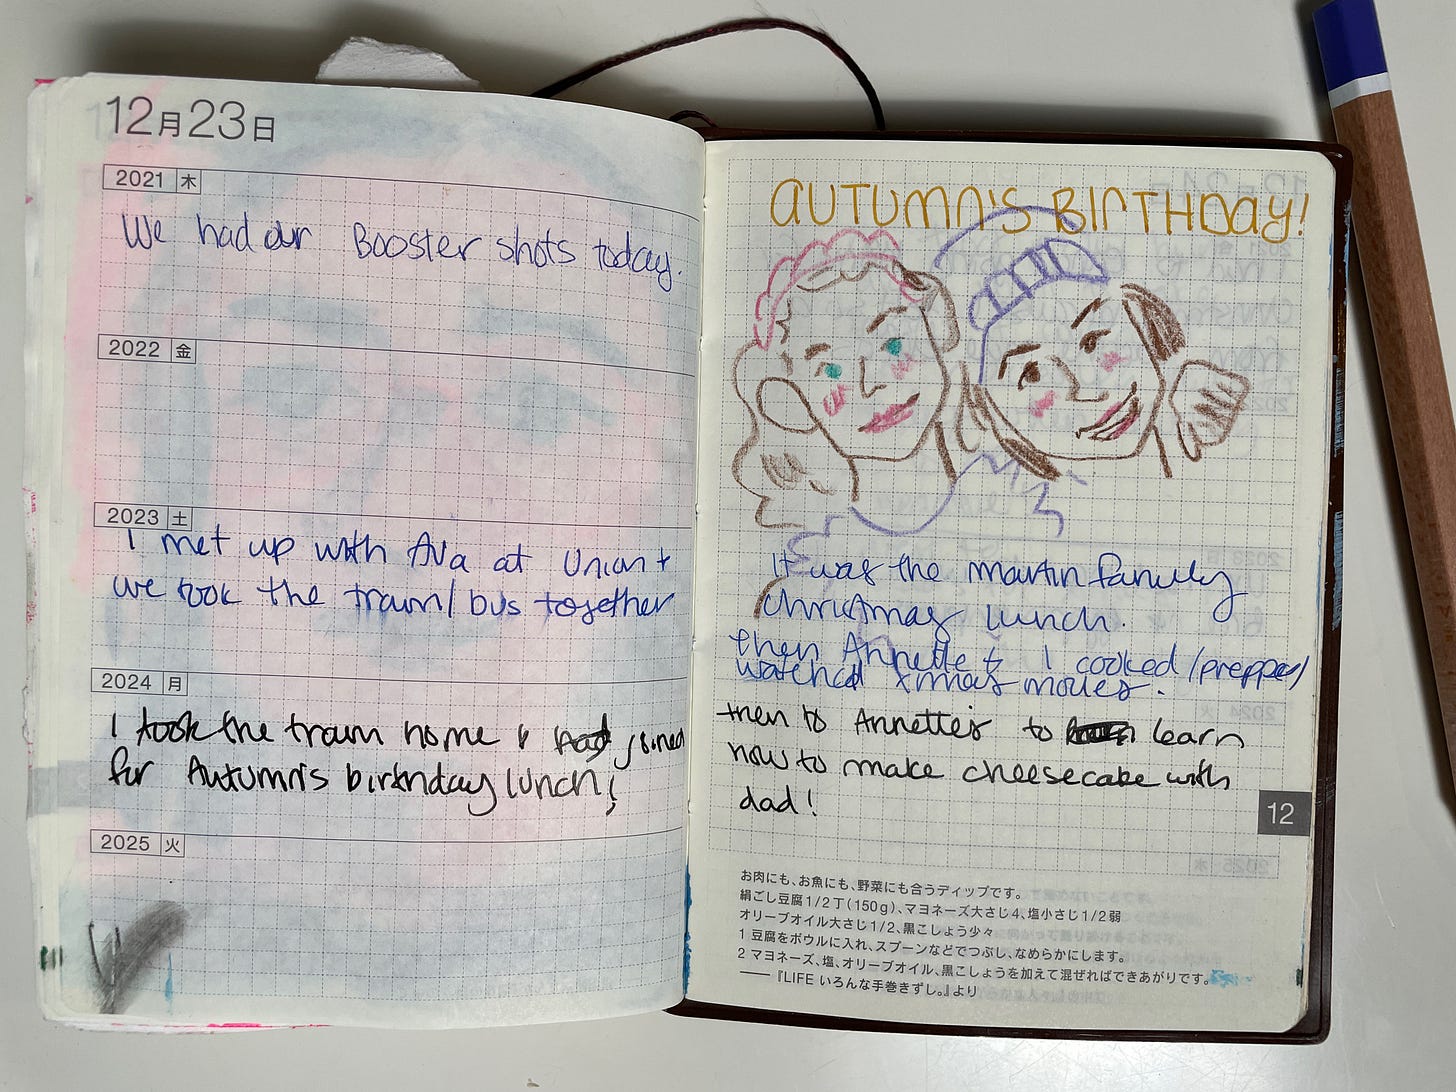 12月23日
2021 木
We had our Booster shots today.
2022 金
2023 土
I met up with Ava at Union +
we took the train/bus together
2024 月
I took the train home & joined
for Autumn's birthday lunch!
2025 火
AUTUMN'S BIRTHDAY!
It was the martin family
christmas lunch.
then Annette & I cooked/prepped/
watched xmas movies.
then to Annette's to learn
how to make cheesecake with
dad!
12
お肉にも、お魚にも、野菜にも合うディップです。
絹ごし豆腐1/2丁(150g)、マヨネーズ大さじ4、塩小さじ1/2弱
オリーブオイル大さじ1/2、黒こしょう少々
1 豆腐をボウルに入れ、スプーンなどでつぶし、なめらかにします。
2 マヨネーズ、塩、オリーブオイル、黒こしょうを加えて混ぜればできあがりです。
——『LIFE いろんな手巻きずし。』より